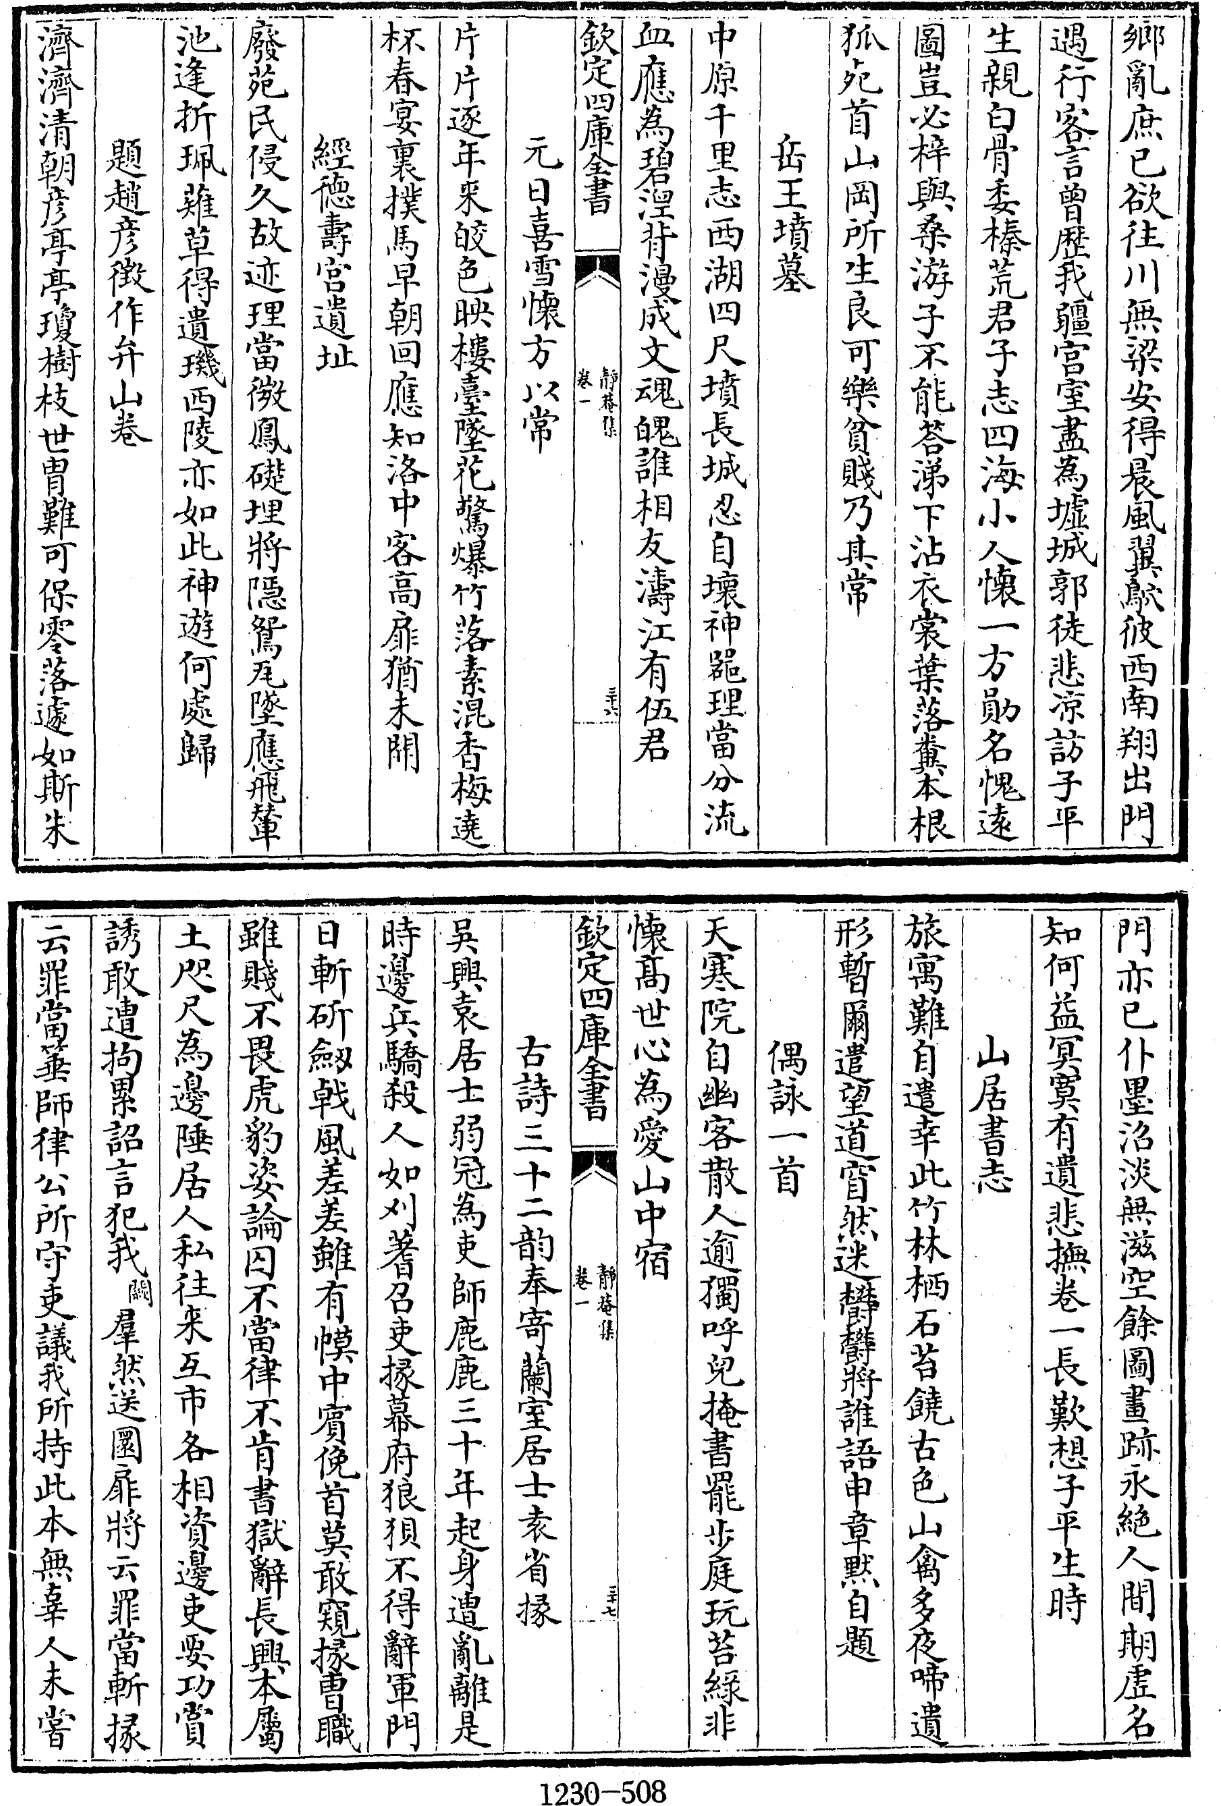 鄉亂庶已欲往川無梁安得晨風翼鴥彼西南翔出門
遇行客言曾歷我疆宫室盡為墟城郭徒悲凉訪子平
生親白骨委榛荒君子志四海小人懷一方勛名愧遠
圖豈必梓與桑游子不能荅涕下沾衣裳葉落糞本根
狐死首山岡所生良可樂貧賤乃其常
岳王墳墓
中原千里志西湖四尺墳長城忍自壞神器理當分流
血應為碧湼背漫成文魂魄誰相友濤江有伍君
欽定四庫全書
靜菴集
卷一
三十六
元日喜雪懷方以常
片片逐年来皎色映樓臺墜花驚爆竹落素混香梅遶
杯春宴裏撲馬早朝回應知洛中客高扉猶未開
經德壽宫遺址
廢苑民侵久故迹理當微鳳礎埋將隱鴛瓦墜應飛輦
池逢折珮薙草得遺璣西陵亦如此神遊何處歸
題趙彦徵作弁山卷
濟濟清朝彦亭亭瓊樹枝世胄難可保零落遽如斯朱
門亦已仆墨沼淡無滋空餘圖畫跡永絶人間期虛名
知何益冥寞有遺悲撫卷一長歎想子平生時
山居書志
旅寓難自遣幸此竹林栖石苔饒古色山禽多夜啼遺
形暫爾遣望道窅然迷欝欝將誰語申章黙自題
偶詠一首
天寒院自幽客散人逾獨呼兒掩書罷步庭玩苔綠非
懷髙世心為愛山中宿
欽定四庫全書
靜菴集
卷一
三十七
古詩三十二韵奉寄蘭室居士袁省掾
吳興袁居士弱冠為吏師鹿鹿三十年起身遭亂離是
時邊兵驕殺人如刈蓍召吏掾幕府狼狽不得辭軍門
日斬斫劔戟風差差雖有幙中賔俛首莫敢窺掾曹職
雖賤不畏虎豹姿論囚不當律不肯書獄辭長興本屬
土咫尺為邊陲居人私往来互市各相資邊吏要功賞
誘敢遭拘累詔言犯我闕羣然送圜扉將云罪當斬掾
云罪當箠師律公所守吏議我所持此本無辜人未甞
1230-508